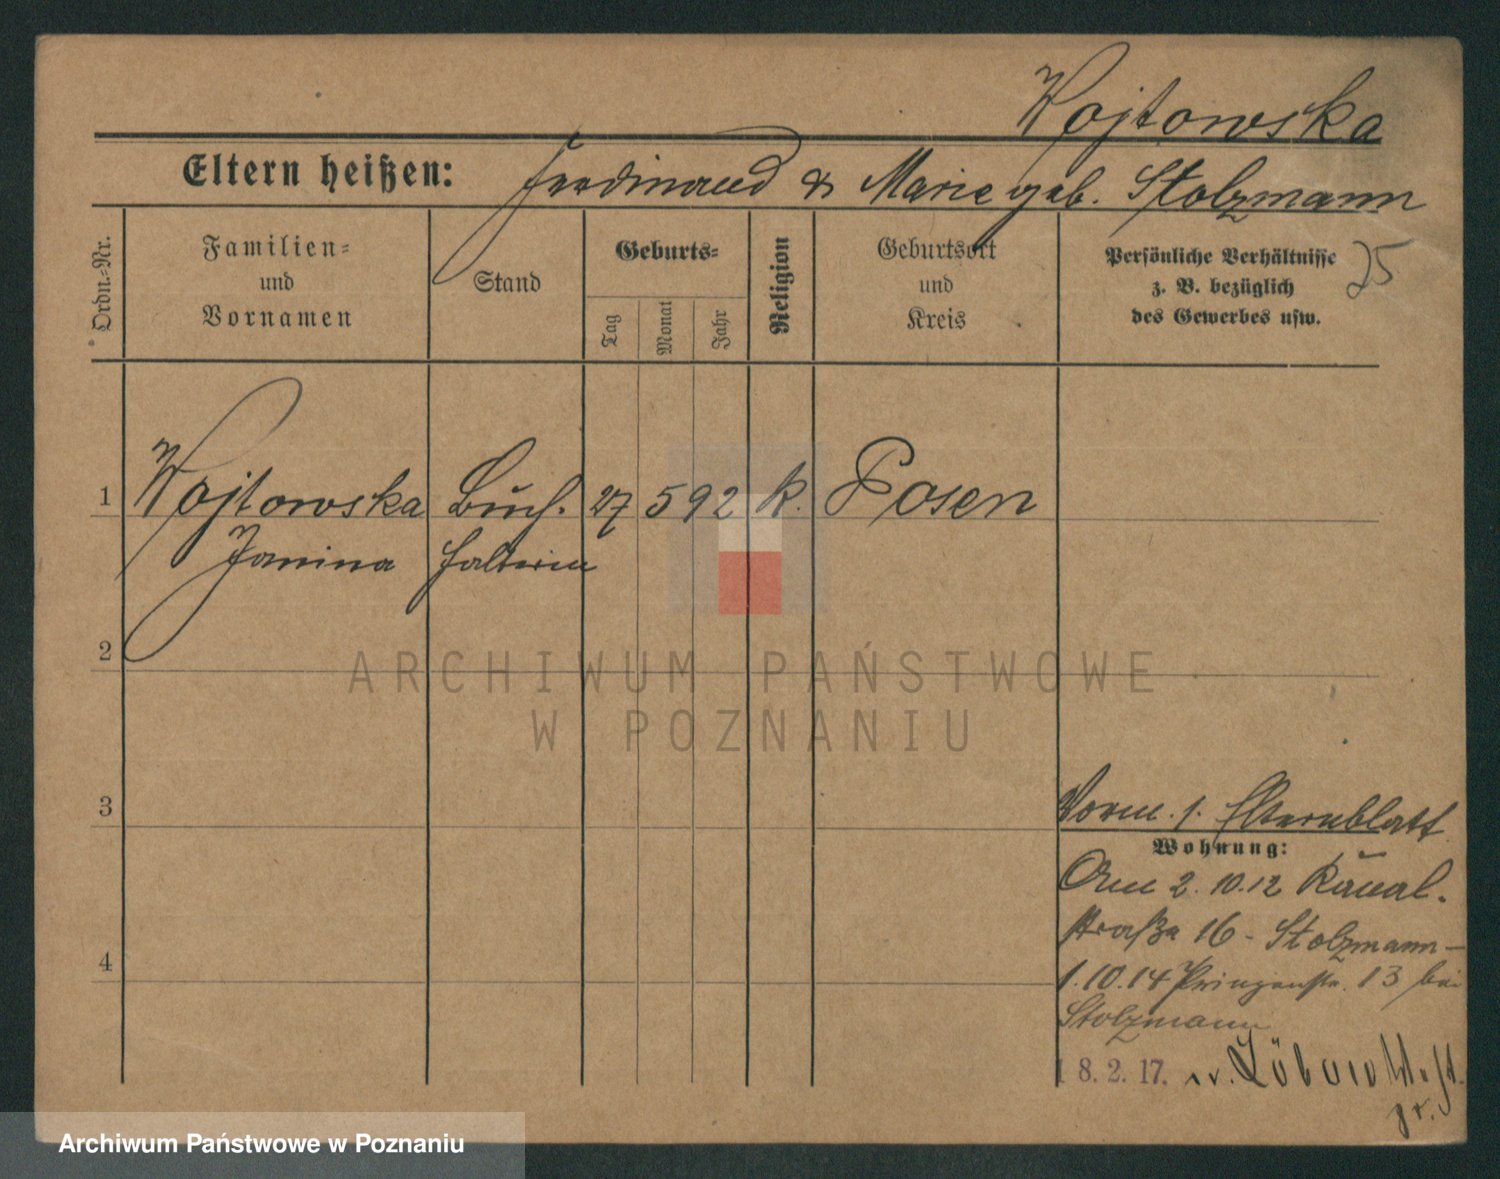 Wojtowska
Eltern heißen: Ferdinand & Marie geb. Stolzmann
Ordn.-Nr.
Familien-
und
Vornamen
Stand
Geburts-
Tag
Monat
Jahr
Religion
Geburtsort
und
Kreis
Persönliche Verhältnisse
z. B. bezüglich
des Gewerbes usw.
25
1 Wojtowska Buch- 27 5 92 k. Posen
Janina halterin
2
ARCHIWUM PAŃSTWOWE
W POZNANIU
3
Vorm. s. Elternblatt
Wohnung:
Am 2.10.12 Kanal-
straße 16 - Stolzmann -
4
1.10.14 Prinzenstr. 13 bei
Stolzmann
18. 2. 17. Löbau
Archiwum Państwowe w Poznaniu